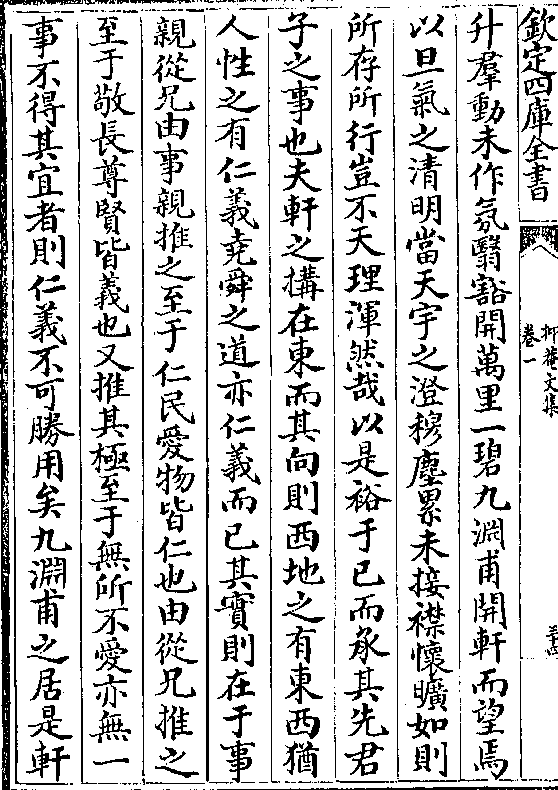 欽定四庫全書
卷一
升羣動未作氛翳豁開萬里一碧九淵甫開軒而望焉
以旦氣之清明當天宇之澄穆塵累未接襟懷曠如則
所存所行豈不天理渾然哉以是裕于已而承其先君
子之事也夫軒之搆在東而其向則西地之有東西猶
人性之有仁義堯舜之道亦仁義而已其實則在于事
親從兄由事親推之至于仁民愛物皆仁也由從兄推之
至于敬長尊賢皆義也又推其極至于無所不愛亦無一
事不得其宜者則仁義不可勝用矣九淵甫之居是軒